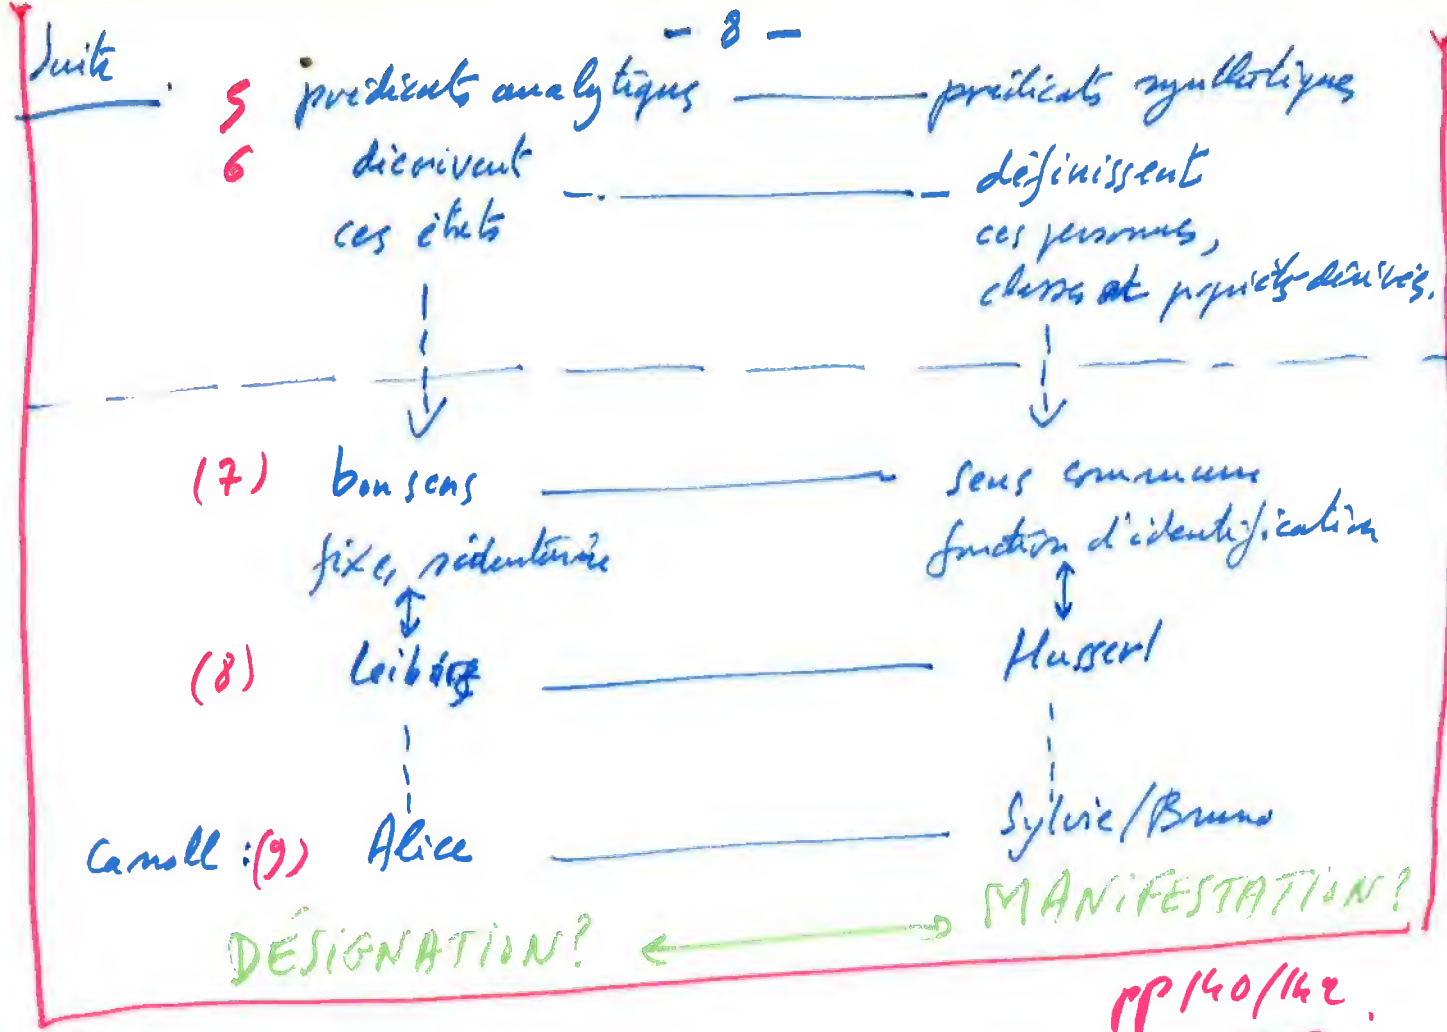 - 8 -
Suite
5 prédicats analytiques — prédicats synthétiques
6 décrivent — définissent
ces états ces personnes,
classes et propriétés dérivés.
(7) bon sens — sens commun
fixe, sédentaire fonction d'identification
(8) Leibniz — Husserl
Carroll : (9) Alice — Sylvie/Bruno
DÉSIGNATION? MANIFESTATION?
pp 140/142.